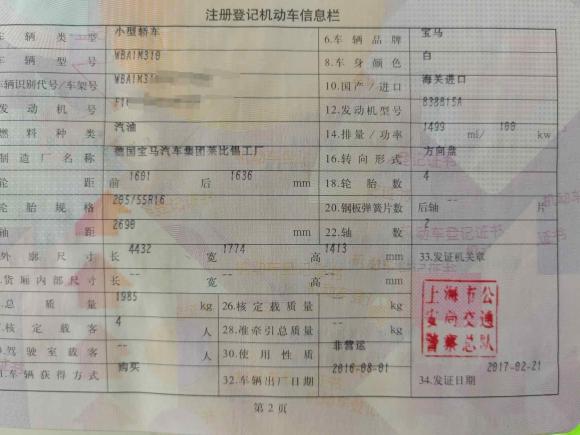 注册登记机动车信息栏
车辆类型 小型轿车 6.车辆品牌 宝马
车辆型号 WBA1M310 8.车身颜色 白
车辆识别代号/车架号 WBA1M3 10.国产/进口 海关进口
发动机号 F1 12.发动机型号 B38B15A
燃料种类 汽油 14.排量/功率 1499 ml/ 100 kw
制造厂名称 德国宝马汽车集团莱比锡工厂 16.转向形式 方向盘
轮距 前 1601 后 1636 mm 18.轮胎数 4
轮胎规格 205/55R16 20.钢板弹簧片数 后轴 -- 片
轴距 2690 mm 22.轴数 2
外廓尺寸 长 4432 宽 1774 高 1413 mm 33.发证机关章
.货厢内部尺寸 长 -- 宽 -- 高 -- mm
.总质量 1985 kg 26.核定载质量 -- kg
.核定载客 4 人 28.准牵引总质量 -- kg
.驾驶室载客 -- 人 30.使用性质 非营运
.车辆获得方式 购买 32.车辆出厂日期 2016-08-01 34.发证日期 2017-02-21
上海市公
安局交通
警察总队
第2页
机动车登记证书